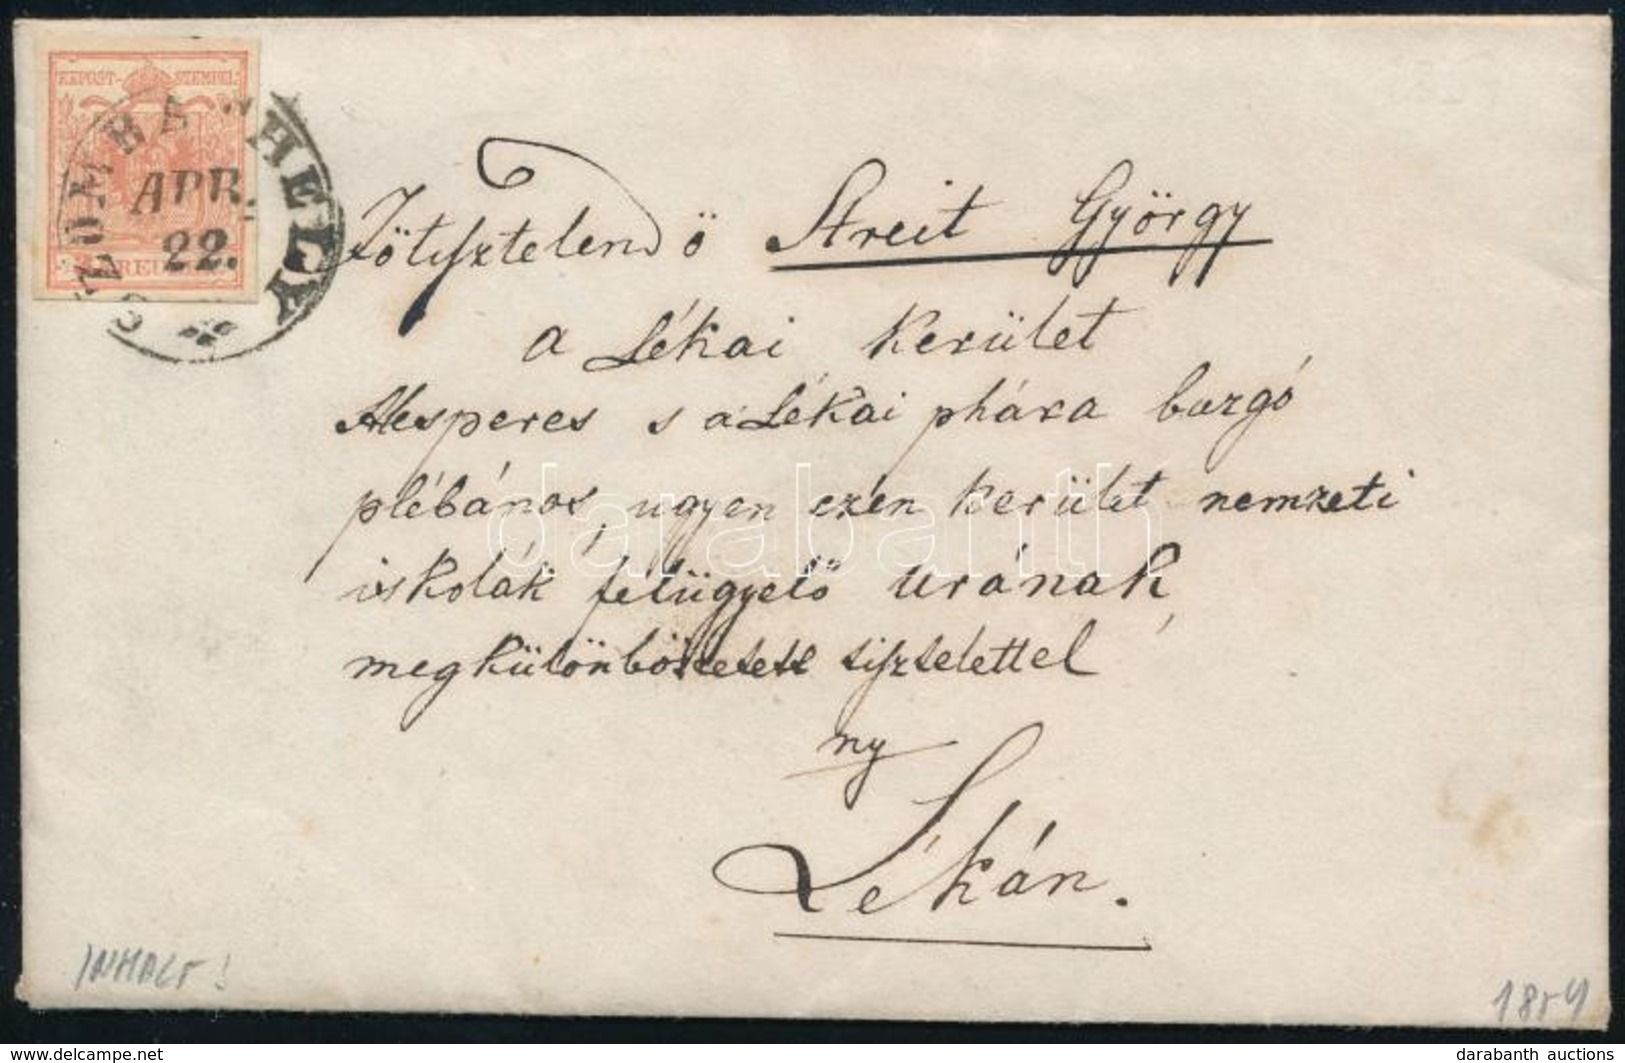 KKPOST-STEMPEL
SZOMBATHELY
APR.
22.
Főtisztelendő Streit György
a Lékai kerület
Alesperes s a Lékai phára buzgó
plébános, ugyen ezen kerület nemzeti
iskolák felügyelő urának
megkülönböztetett tisztelettel
ny
Lékán.
INHALT!
1854
darabanth
delcampe.net
darabanth auctions